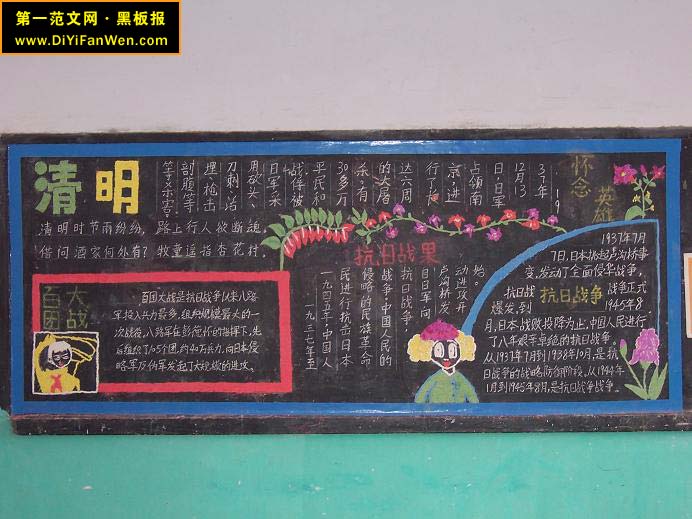 第一范文网·黑板报
www.DiYiFanWen.com
清明
清明时节雨纷纷，路上行人欲断魂。
借问酒家何处有？牧童遥指杏花村。
怀念
英雄
19
37年
12月13
日，日军
占领南
京，进
行了长
达六周
的大屠
杀，有
30多万
平民和
战俘被
日军采
用砍头、
刀刺、活
埋、枪击
剖腹等
等杀害。
百团
大战
百团大战是抗日战争以来八路
军投入兵力最多，组织规模最大的一
次战役，八路军在彭德怀的指挥下，先
后组织了105个团，约40万兵力，向日本侵
略军及伪军发起了大规模的进攻。
抗日战果
一九三七年至
一九四五年，中国人
民进行抗击日本
侵略的民族革命
战争，中国人民的
抗日战争，
自日军向
卢沟桥发
动进攻开
始。
1937年7月
7日，日本挑起卢沟桥事
变，发动了全面侵华战争，
抗日战 抗日战争 战争正式
爆发，到 1945年8
月，日本战败投降为止，中国人民进行
了八年艰辛卓绝的抗日战争。
从1937年7月到1938年10月，是抗
日战争的战略防御阶段。从1944年
1月到1945年8月，是抗日战争战争。